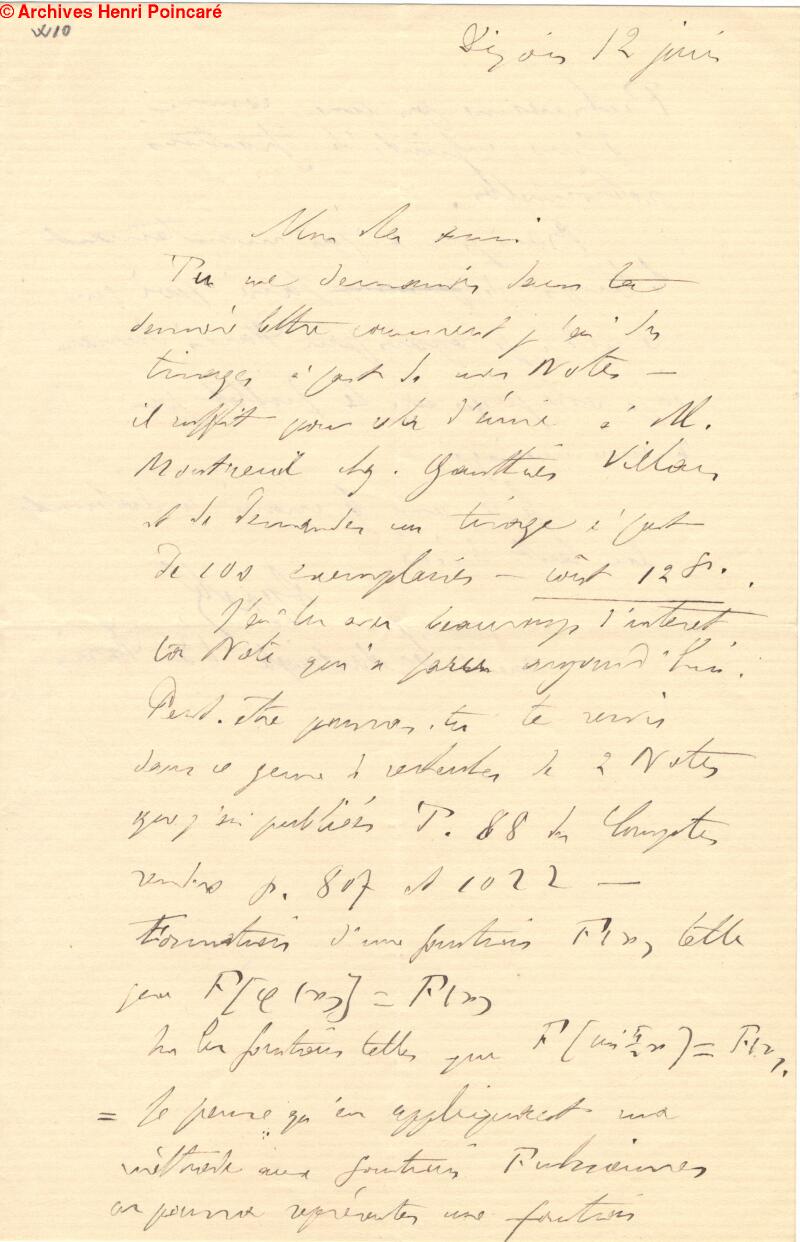 © Archives Henri Poincaré
Dijon 12 juin
Mon cher ami
Tu me demandes dans ta
dernière lettre comment j'ai des
tirages à part de mes Notes —
il suffit pour cela d'écrire à M.
Montreuil chez Gauthier Villars
et de demander un tirage à part
de 100 exemplaires — coût 12 fr.
J'ai lu avec beaucoup d'intéret
ta Note qui a paru aujourd'hui.
Peut-être pourras-tu te servir
dans ce genre de recherches de 2 Notes
que j'ai publiées T. 88 des Comptes
rendus p. 807 et 1022 —
Formation d'une fonction F(x) telle
que F[φ(x)] = F(x)
Sur les fonctions telles que F[sin π/2 x] = F(x).
= Je pense qu'en appliquant ma
méthode aux fonctions Fuchsiennes
on pourra représenter une fonction